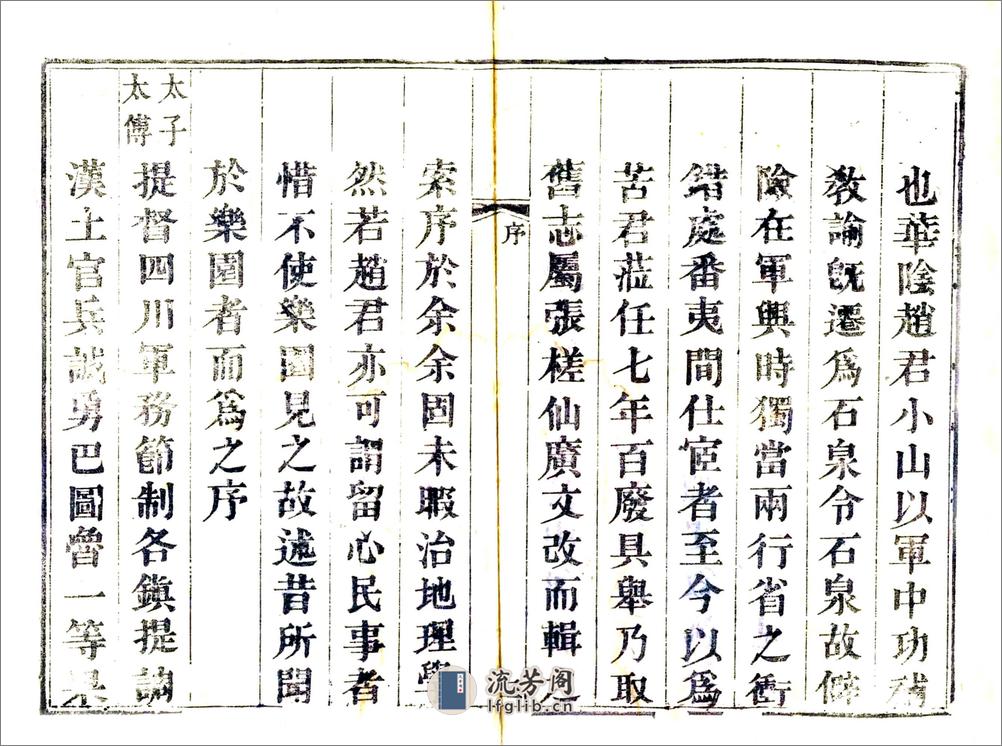 也華陰趙君小山以軍中功補
教諭既遷為石泉令石泉故僻
險在軍興時獨當兩行省之衝
錯處番夷間仕宦者至今以為
苦君蒞任七年百廢具舉乃取
舊志屬張槎仙廣文改而輯
序
索序於余余固未暇治地理學
然若趙君亦可謂留心民事者
惜不使樂園見之故述昔所聞
於樂園者而為之序
太子
太傅
提督四川軍務節制各鎮提調
漢土官兵誠勇巴圖魯一等果
流芳阁
lfglib.cn